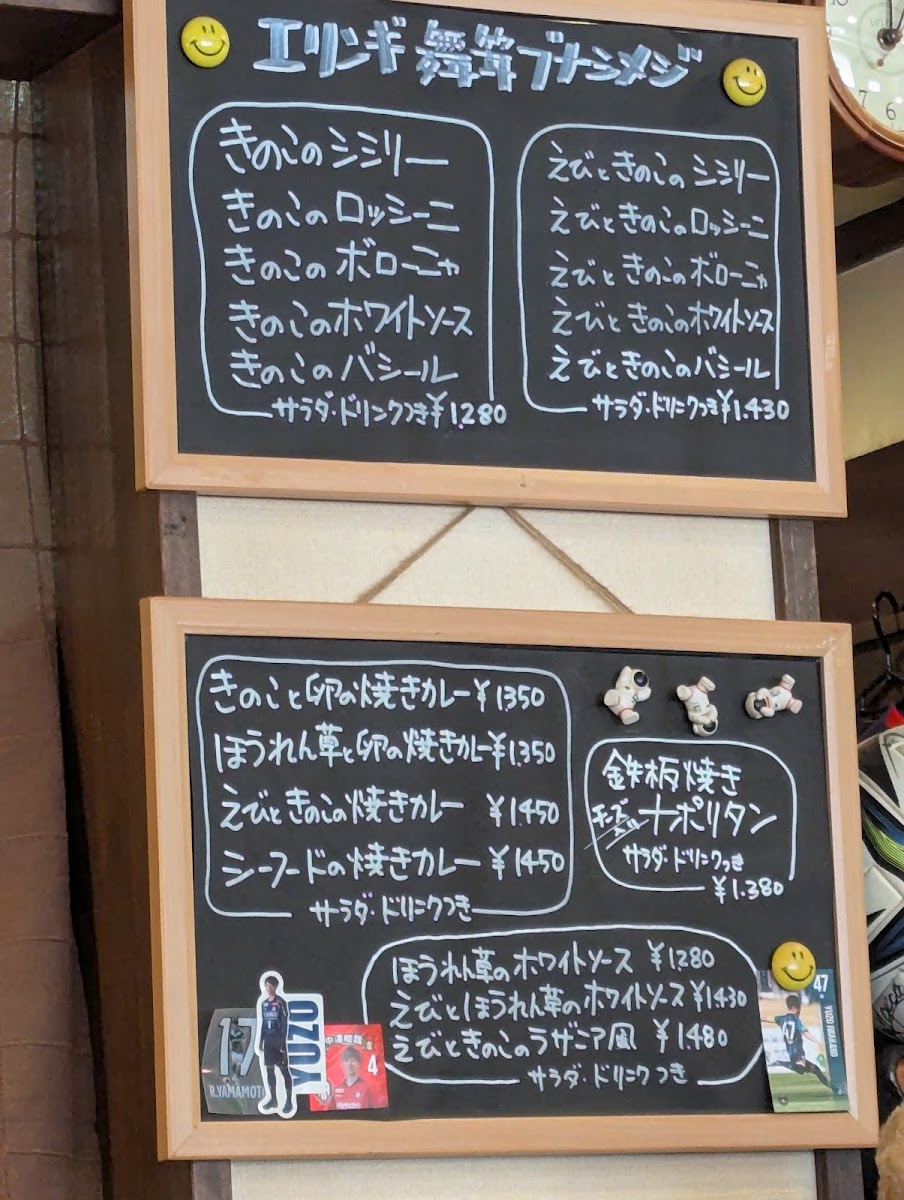 エリンギ 舞茸 ブナシメジ
きのこのシシリー
きのこのロッシーニ
きのこのボローニャ
きのこのホワイトソース
きのこのバジール
サラダ・ドリンクつき ¥1.280
えびときのこのシシリー
えびときのこのロッシーニ
えびときのこのボローニャ
えびときのこのホワイトソース
えびときのこのバジール
サラダ・ドリンクつき ¥1.430
きのこと卵の焼きカレー ¥1350
ほうれん草と卵の焼きカレー ¥1.350
えびときのこの焼きカレー ¥1.450
シーフードの焼きカレー ¥1450
サラダ・ドリンクつき
鉄板焼き
チーズ入り ナポリタン
サラダ・ドリンクつき
¥1.380
ほうれん草のホワイトソース ¥1280
えびとほうれん草のホワイトソース ¥1430
えびときのこのラザニア風 ¥1.480
サラダ・ドリンクつき
17
R.YAMAMOTO
YUZO
4
47
YUZO IWAKAMI
47
7
6